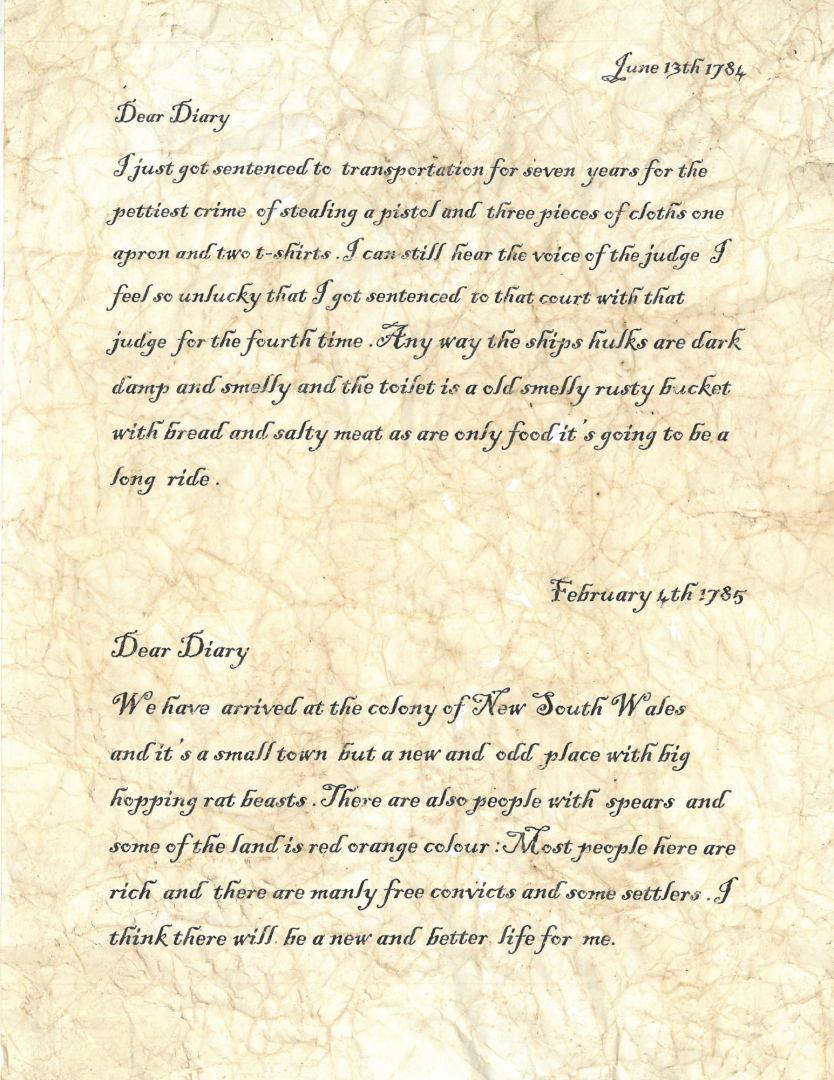 June 13th 1784
Dear Diary
I just got sentenced to transportation for seven years for the
pettiest crime of stealing a pistol and three pieces of cloths one
apron and two t-shirts . I can still hear the voice of the judge I
feel so unlucky that I got sentenced to that court with that
judge for the fourth time . Any way the ships hulks are dark
damp and smelly and the toilet is a old smelly rusty bucket
with bread and salty meat as are only food it's going to be a
long ride .
February 4th 1785
Dear Diary
We have arrived at the colony of New South Wales
and it's a small town but a new and odd place with big
hopping rat beasts . There are also people with spears and
some of the land is red orange colour : Most people here are
rich and there are manly free convicts and some settlers . I
think there will be a new and better life for me.